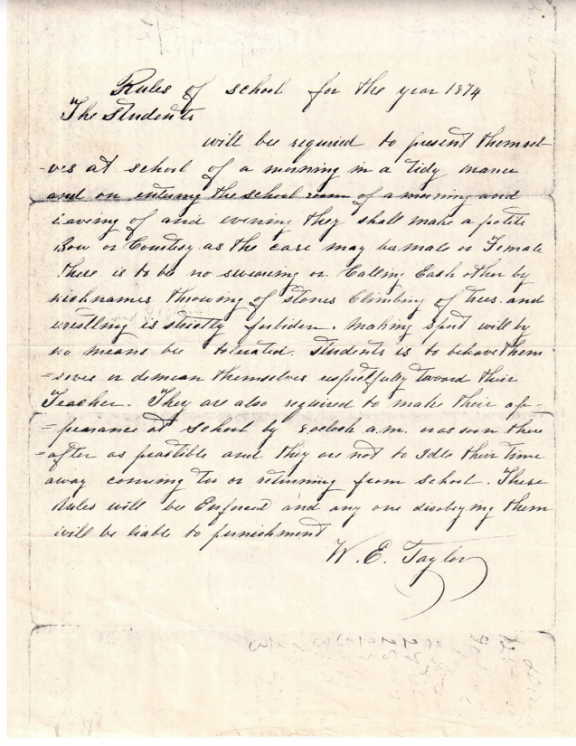 Rules of school for the year 1874
The Students
will bee required to present themsel-
-ves at school of a morning in a tidy manner
and on entering the school room of a morning and
leaving of and evening they shall make a polite
Bow or Courtesy as the case may be male or Female
There is to be no swearing or Calling Each other by
nicknames throwing of stones Climbing of trees and
wrestling is strictly forbiden. Making sport will by
no means bee tolerated. Students is to behave them
=selves or demean themselves respectfully toward their
Teacher. They are also required to make their ap-
=pearance at School by 8 oclock a.m. or as soon there
=after as and they are not to Idle their time
away coming too or returning from school. These
Rules will be Enforced and any one disobeying them
will be liable to punishment
W. E. Taylor